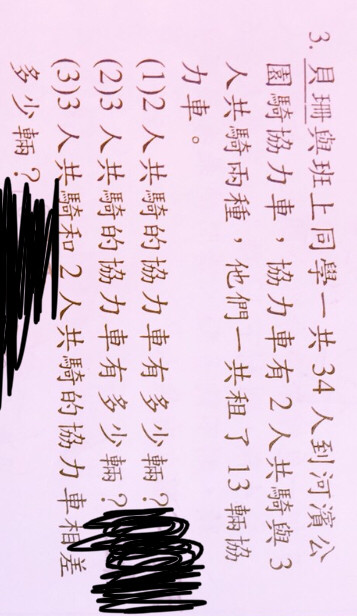 3. 貝珊與班上同學一共 34 人到河濱公
園騎協力車，協力車有 2 人共騎與 3
人共騎兩種，他們一共租了 13 輛協
力車。
(1)2 人共騎的協力車有多少輛？
(2)3 人共騎的協力車有多少輛？
(3)3 人共騎和 2 人共騎的協力車相差
多少輛？